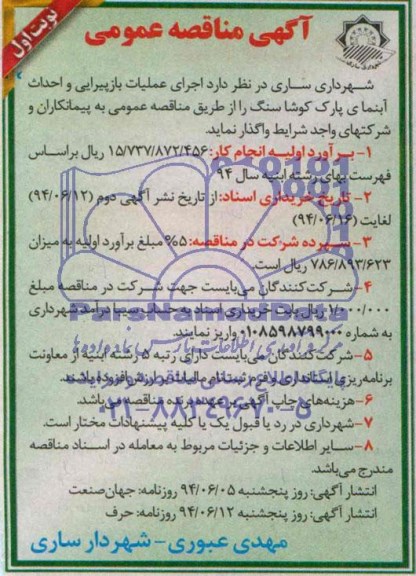 نوبت اول
آگهی مناقصه عمومی
شهرداری ساری در نظر دارد اجرای عملیات بازپیرایی و احداث
آبنمای پارک کوشا سنگ را از طریق مناقصه عمومی به پیمانکاران و
شرکتهای واجد شرایط واگذار نماید.
۱- برآورد اولیه انجام کار: ۱۵/۷۳۷/۸۷۲/۴۵۶ ریال براساس
فهرست بهای رشته ابنیه سال ۹۴
۲- تاریخ خریداری اسناد: از تاریخ نشر آگهی دوم (۹۴/۰۶/۱۲)
لغایت (۹۴/۰۶/۱۶)
۳- سپرده شرکت در مناقصه: ۵٪ مبلغ برآورد اولیه به میزان
۷۸۶/۸۹۳/۶۲۳ ریال است.
۴- شرکت‌کنندگان می‌بایست جهت شرکت در مناقصه مبلغ
۱/۰۰۰/۰۰۰ ریال بابت خریداری اسناد به حساب سیبا درآمد شهرداری
به شماره ۰۱۰۸۵۹۸۷۹۹۰۰۰ واریز نمایند.
۵- شرکت‌کنندگان می‌بایست دارای رتبه ۵ رشته ابنیه از معاونت
برنامه‌ریزی استانداری و گواهی ثبت‌نام مالیات بر ارزش افزوده باشند.
۶- هزینه‌های چاپ آگهی بر عهده برنده مناقصه می‌باشد.
۷- شهرداری در رد یا قبول یک یا کلیه پیشنهادات مختار است.
۸- سایر اطلاعات و جزئیات مربوط به معامله در اسناد مناقصه
مندرج می‌باشد.
انتشار آگهی: روز پنجشنبه ۹۴/۰۶/۰۵ روزنامه: جهان‌صنعت
انتشار آگهی: روز پنجشنبه ۹۴/۰۶/۱۲ روزنامه: حرف
مهدی عبوری - شهردار ساری
ParsNamadData
۰۲۱-۸۸۳۴۹۶۷۰-۵